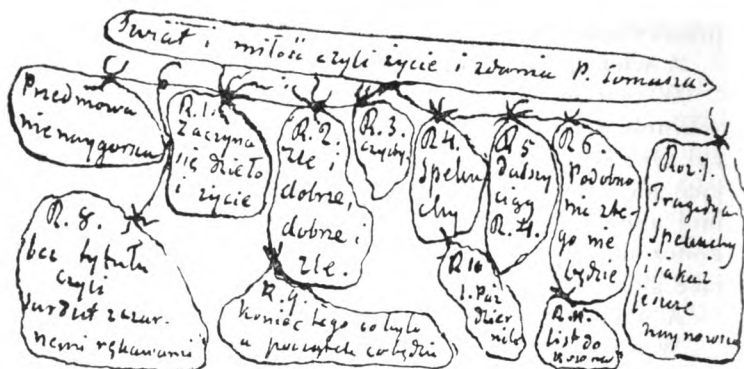 Świat i miłość czyli życie i zdania P. Tomasza.
Przedmowa
nienaygorsza
R. 1.
Zaczyna
się dzieło
i życie
R. 2.
Złe i
dobre,
dobre i
złe.
R. 3.
R 4.
Spelun
chy
R 5
dalszy
ciąg
R. 4.
R 6.
Podobno
nic złe-
go nie
będzie
Roz 7.
Tragedya
Speluchy
i jakaś
jeszcze
naynowsza
R. 8.
bez tytułu
czyli
surdut z czar-
nemi rękawami
R. 9.
Koniec tego co było
a początek co będzie
R 10
1. Paź
dzier
nika
R. 11.
List do